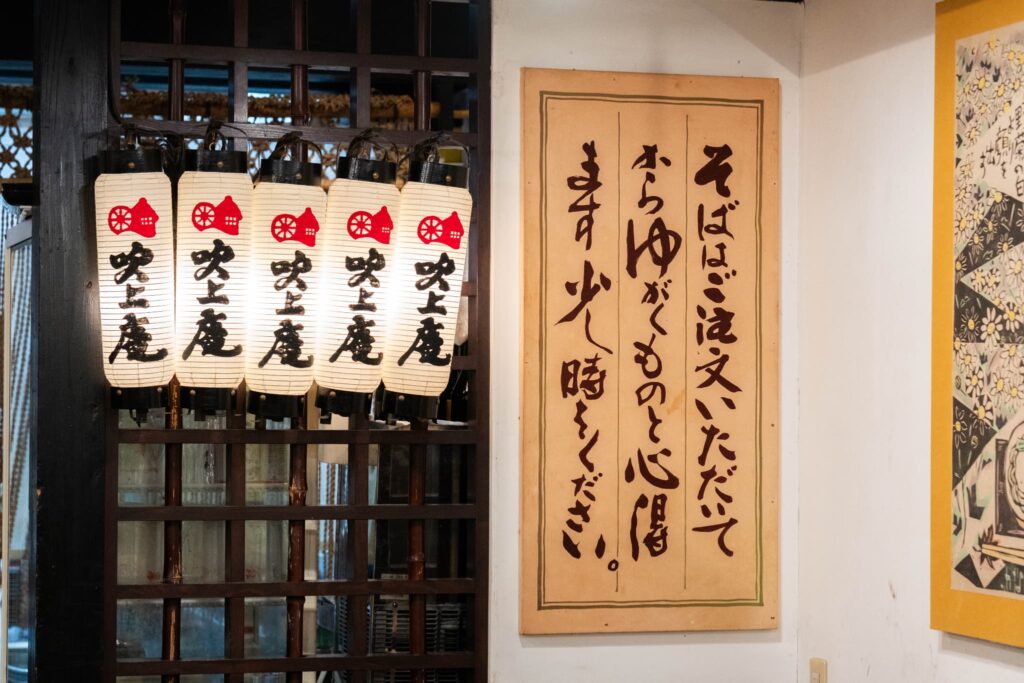 吹上庵
吹上庵
吹上庵
吹上庵
吹上庵
そばはご注文いただいて
からゆがくものと心得
ます少し時をください。